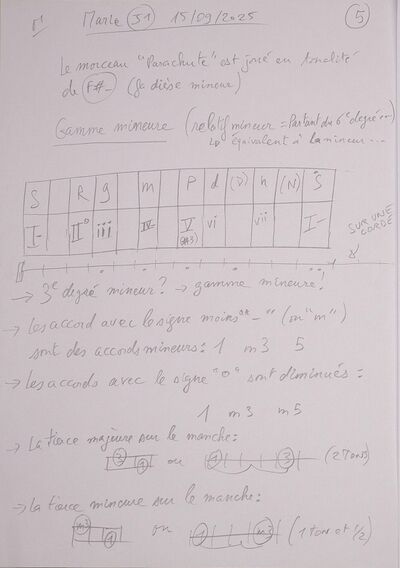 Marle S1 15/09/2025 5
Le morceau "Parachute" est joué en tonalité
de F#- (fa dièse mineur)
Gamme mineure (relatif mineur = Partant du 6e degré...
↳ équivalent à la mineur ...
S R g m P d (D) n (N) S
I- II° iii IV- V (m3) vi vii I-
SUR UNE
CORDE
→ 3e degré mineur? → gamme mineure!
→ Les accord avec le signe moins "-" (ou "m")
sont des accords mineurs: 1 m3 5
→ Les accords avec le signe "o" sont diminués:
1 m3 m5
→ La tierce majeure sur le manche:
3 1 ou 1 3 (2 Tons)
→ La tierce mineure sur le manche:
m3 1 ou 1 m3 (1 ton et 1/2)